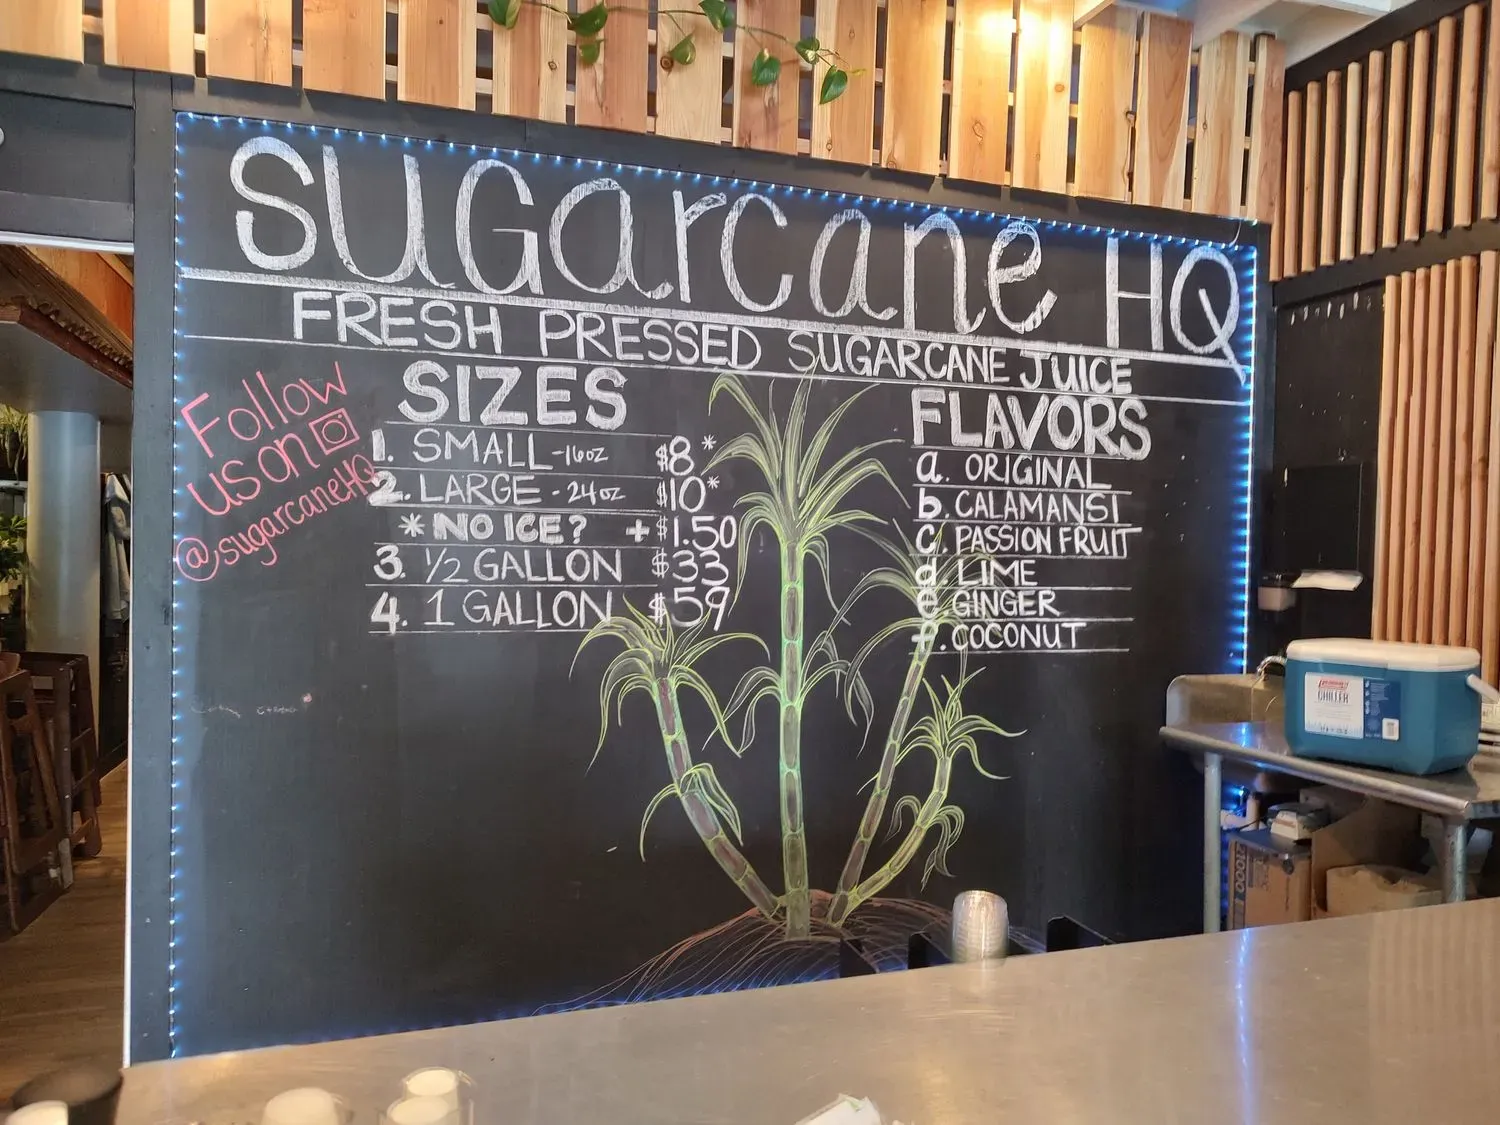 SUGarcane HQ
FRESH PRESSED SUGARCANE JUICE
Follow
us on
@sugarcaneHQ
SIZES
1. SMALL - 16oz $8*
2. LARGE - 24oz $10*
* NO ICE? + $1.50
3. 1/2 GALLON $33
4. 1 GALLON $59
FLAVORS
a. ORIGINAL
b. CALAMANSI
c. PASSION FRUIT
d. LIME
e. GINGER
f. COCONUT
Coleman
CHILLER